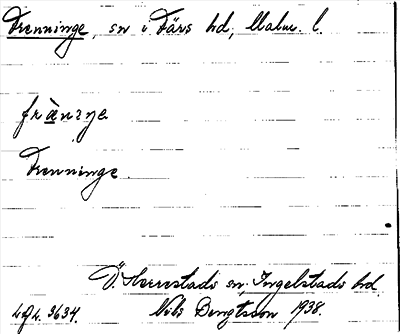 Frenninge, sn i Färs hd, Malm. l.
frànɪŋe
Frenninge.
Ö. Herrestads sn, Ingelstads hd.
LGL. 3634. Nils Bengtsson 1938.